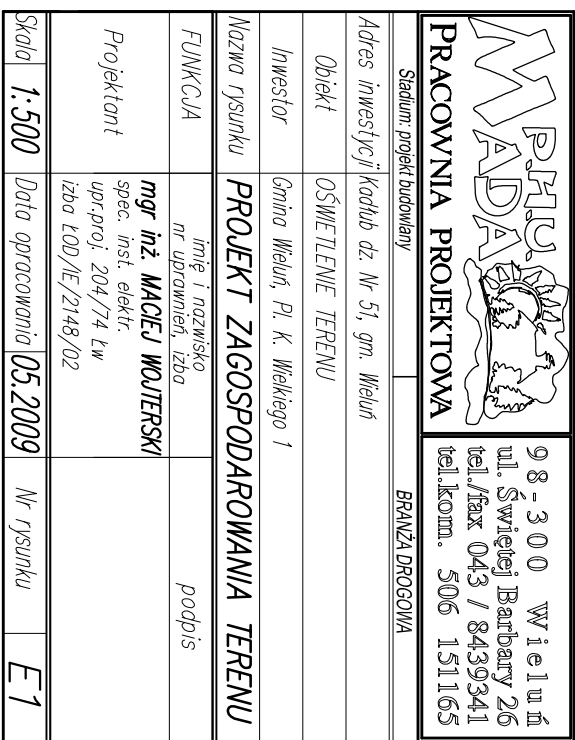 P.H.U.
MADA
PRACOWNIA PROJEKTOWA
98-300 Wieluń
ul. Świętej Barbary 26
tel./fax 043 / 8439341
tel.kom. 506 151165
Stadium: projekt budowlany BRANŻA DROGOWA
Adres inwestycji Kadłub dz. Nr 51, gm. Wieluń
Obiekt OŚWIETLENIE TERENU
Inwestor Gmina Wieluń, Pl. K. Wielkiego 1
Nazwa rysunku PROJEKT ZAGOSPODAROWANIA TERENU
FUNKCJA imię i nazwisko podpis
nr uprawnień, izba
Projektant mgr inż. MACIEJ WOJTERSKI
spec. inst. elektr.
upr.proj. 204/74 Łw
izba ŁOD/IE/2148/02
Skala 1:500 Data opracowania 05.2009 Nr rysunku E1